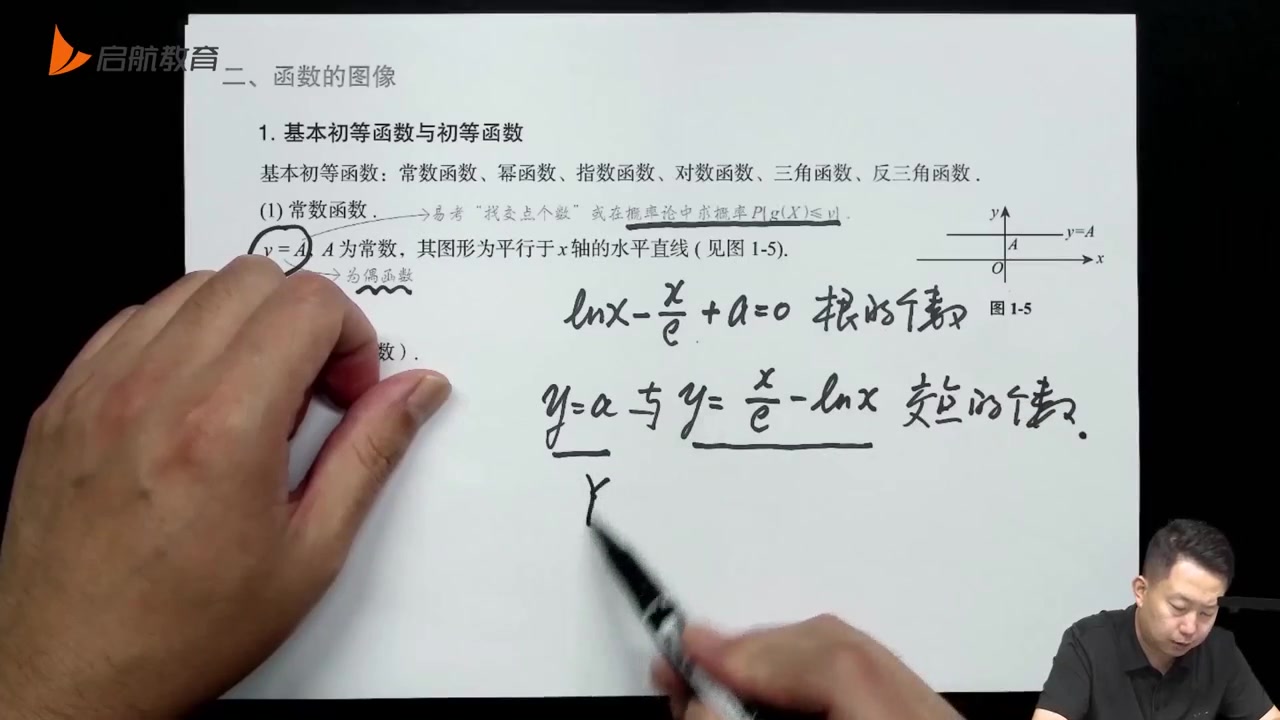 启航教育
二、函数的图像
1. 基本初等函数与初等函数
基本初等函数：常数函数、幂函数、指数函数、对数函数、三角函数、反三角函数．
(1) 常数函数． 易考“找交点个数”或在概率论中求概率P{g(X)≤y}．
y=A, A 为常数，其图形为平行于 x 轴的水平直线 ( 见图 1-5).
为偶函数
数）．
y
y=A
A
O
x
图 1-5
lnx - x/e + a = 0 根的个数
y=a 与 y= x/e - lnx 交点的个数.
Y